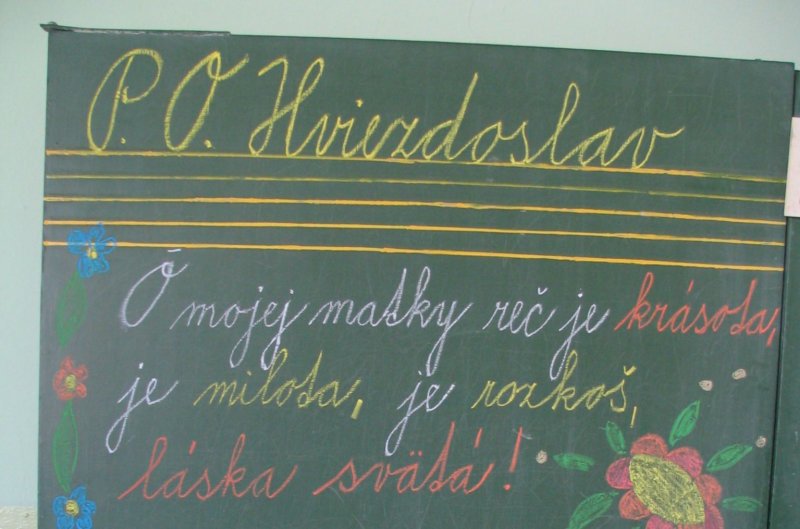 P. O. Hviezdoslav
Ó mojej matky reč je krásota,
je milota, je rozkoš,
láska svätá!